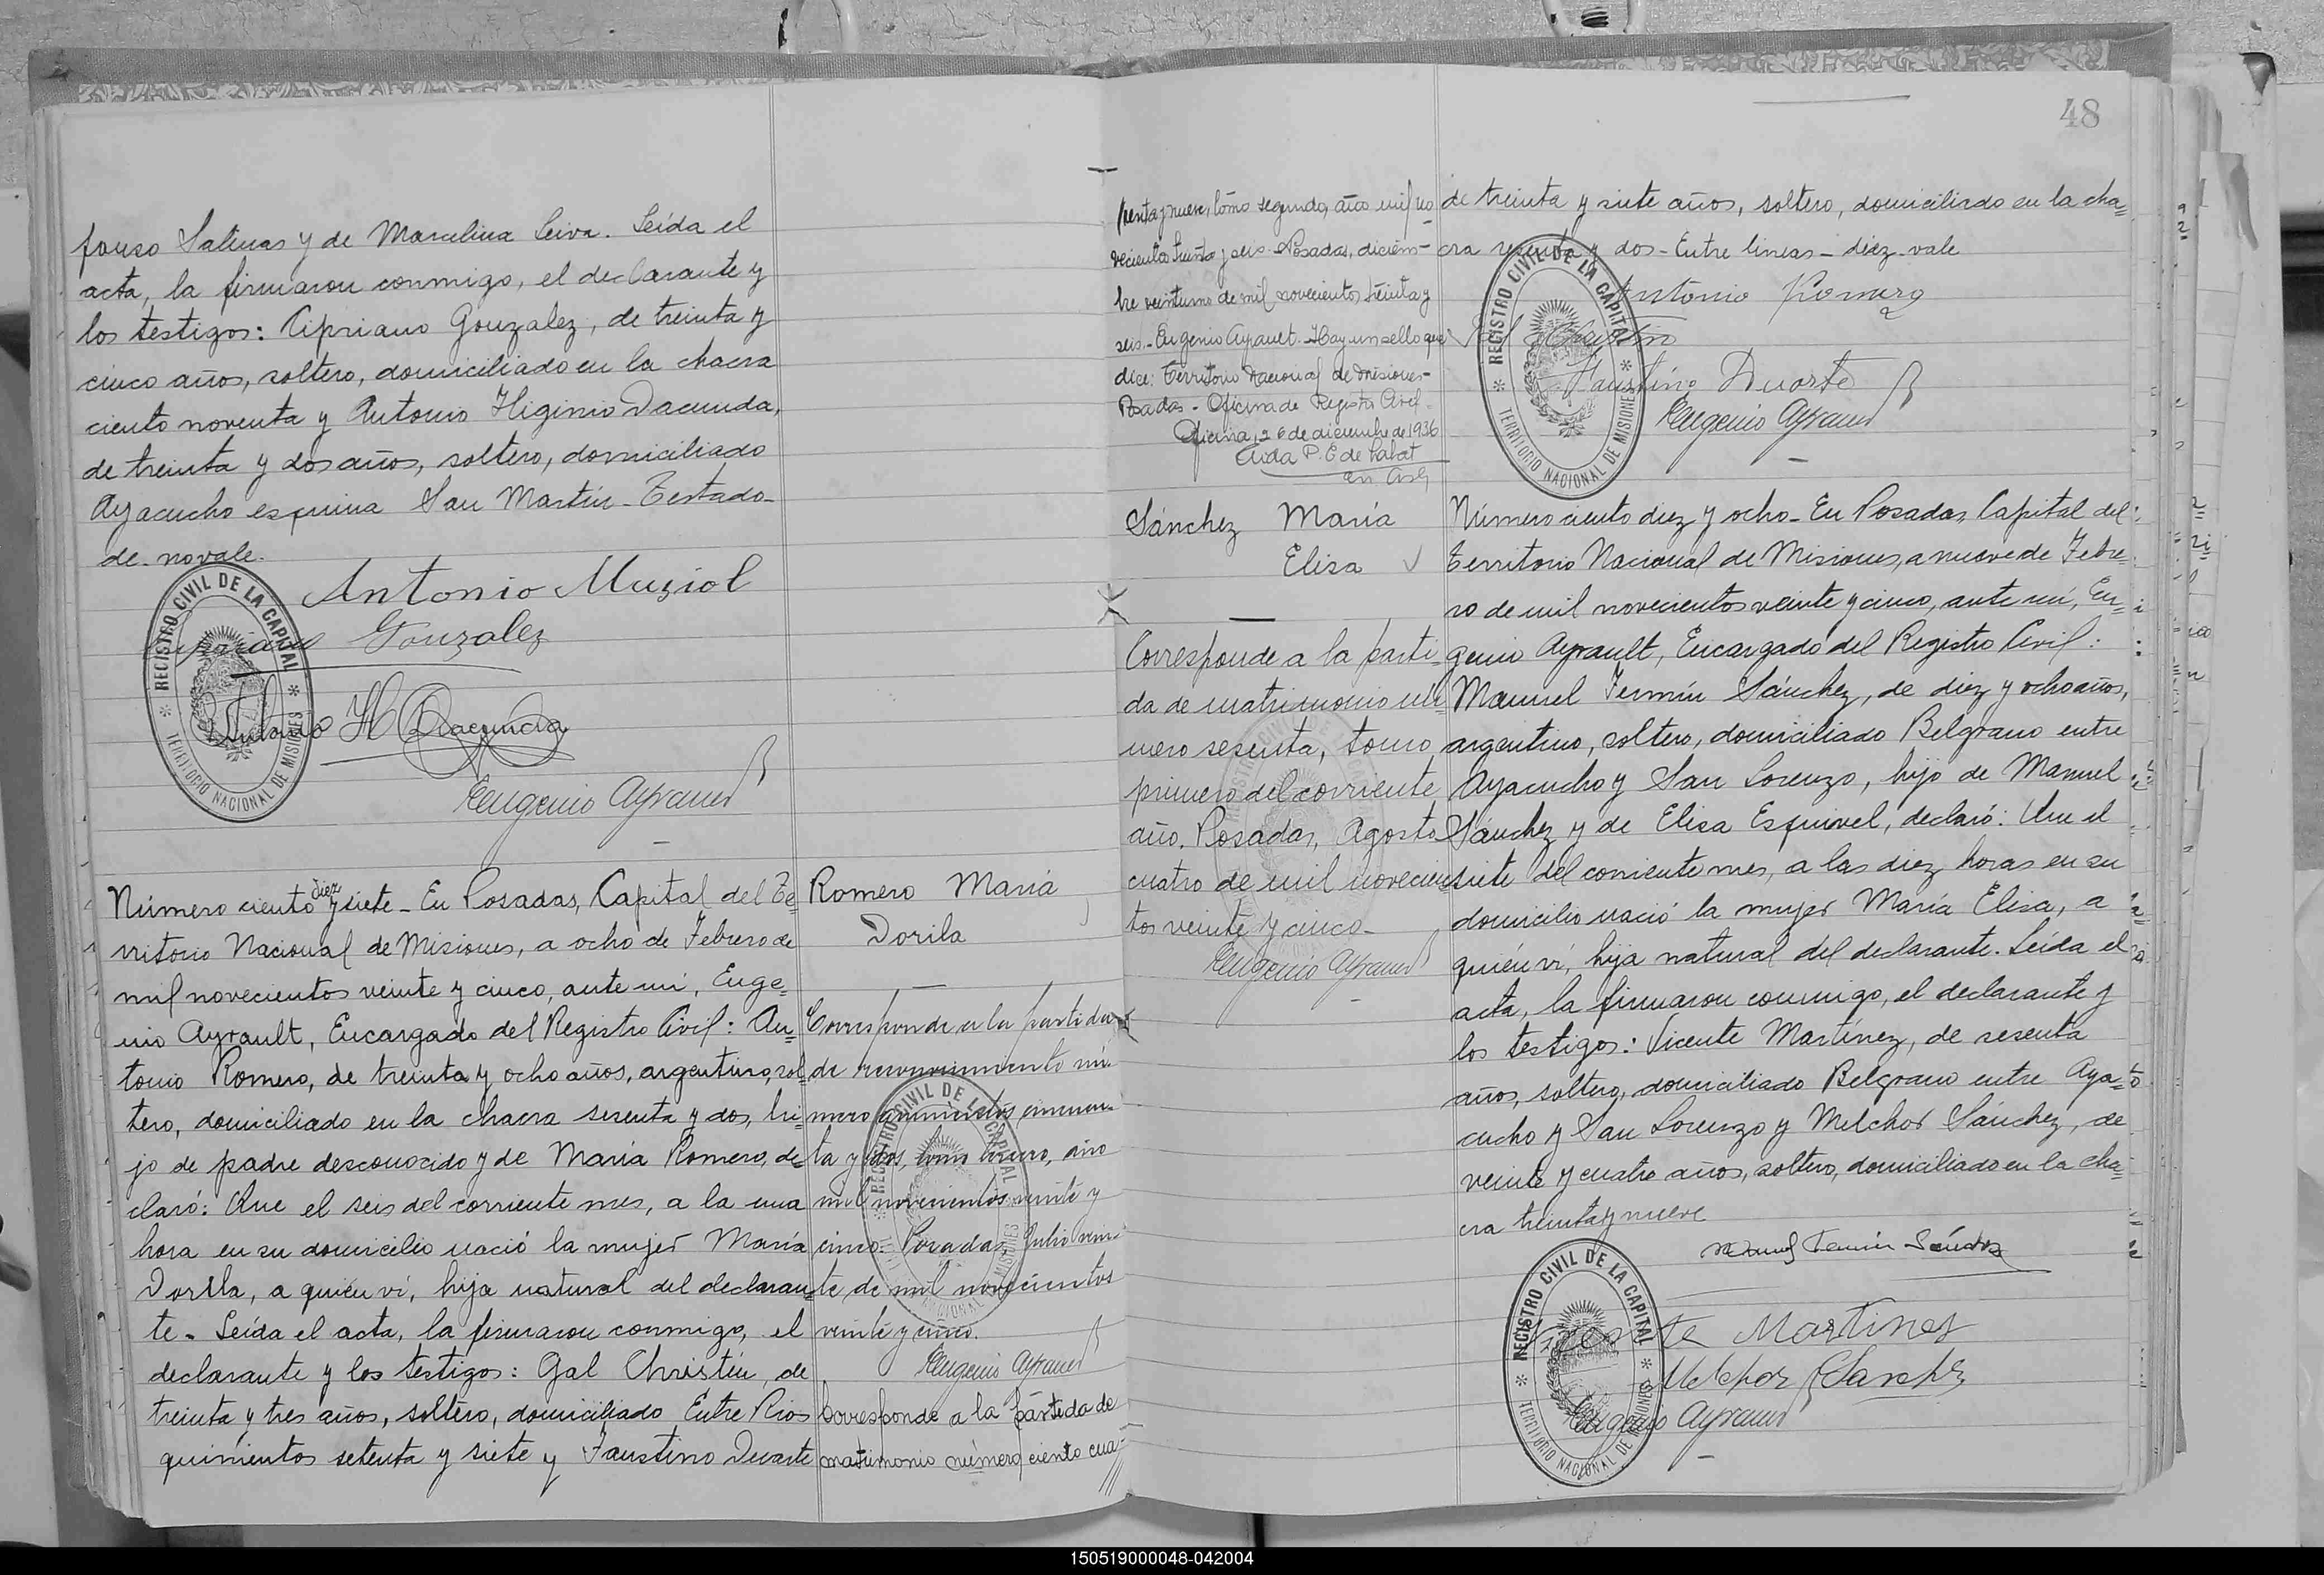 fonso Salinas y de Marcelina Leiva. Leída el
acta, la firmaron conmigo, el declarante y
los testigos: Cipriano Gonzalez, de treinta y
cinco años, soltero, domiciliado en la chacra
ciento noventa y Antonio Higinio Dacunda,
de treinta y dos años, soltero, domiciliado
Ayacucho esquina San Martín - Testado -
de - no vale.
Antonio Muziol
Cipriano Gonzalez
Antonio H Dacunda
Eugenio Ayrault
REGISTRO CIVIL DE LA CAPITAL
TERRITORIO NACIONAL DE MISIONES
Número ciento diez y siete - En Posadas, Capital del Te=
rritorio Nacional de Misiones, a ocho de Febrero de
mil novecientos veinte y cinco, ante mi, Euge=
nio Ayrault, Encargado del Registro Civil: An=
tonio Romero, de treinta y ocho años, argentino, sol=
tero, domiciliado en la chacra sesenta y dos, hi=
jo de padre desconocido y de María Romero, de=
claró: Que el seis del corriente mes, a la una
hora en su domicilio nació la mujer María
Dorila, a quién ví, hija natural del declaran=
te - Leída el acta, la firmaron conmigo, el
declarante y los testigos: Gal Christin, de
treinta y tres años, soltero, domiciliado Entre Rios
quinientos setenta y siete y Faustino Duarte
Romero María
Dorila
Corresponde a la partida
de reconocimiento nú-
mero quinientos cincuen-
ta y dos, tomo tercero, año
mil novecientos veinte y
cinco. Posadas, Julio vein-
te de mil novecientos
veinte y cinco.
Eugenio Ayrault
REGISTRO CIVIL DE LA CAPITAL
NACIONAL MISIONES
Corresponde a la partida de
matrimonio número ciento cua=
48
renta y nueve, tomo segundo, año mil no=
vecientos treinta y seis - Posadas, diciem-
bre veintiuno de mil novecientos treinta y
seis - Eugenio Ayrault. Hay un sello que
dice: Territorio Nacional de Misiones -
Posadas - Oficina de Registro Civil.
Oficina, 26 de diciembre de 1936
Aida P. E de
de treinta y siete años, soltero, domiciliado en la cha=
cra sesenta y dos - Entre lineas - diez - vale
Antonio Romero
Christin
Faustino Duarte
Eugenio Ayrault
REGISTRO CIVIL DE LA CAPITAL
TERRITORIO NACIONAL DE MISIONES
Sánchez María
Elisa
Corresponde a la parti=
da de matrimonio nú=
mero sesenta, tomo
primero del corriente
año. Posadas, Agosto
cuatro de mil novecien=
tos veinte y cinco -
Eugenio Ayrault
Número ciento diez y ocho - En Posadas, Capital del
Territorio Nacional de Misiones, a nueve de Febre=
ro de mil novecientos veinte y cinco, ante mí, Eu=
genio Ayrault, Encargado del Registro Civil:
Manuel Fermín Sánchez, de diez y ocho años,
argentino, soltero, domiciliado Belgrano entre
Ayacucho y San Lorenzo, hijo de Manuel
Sánchez y de Elisa Esquivel, declaró: Que el
siete del corriente mes, a las diez horas en su
domicilio nació la mujer María Elisa, a
quién ví, hija natural del declarante. Leída el
acta, la firmaron conmigo, el declarante y
los testigos: Vicente Martínez, de sesenta
años, soltero, domiciliado Belgrano entre Aya=
cucho y San Lorenzo y Melchor Sánchez, de
veinte y cuatro años, soltero, domiciliado en la cha=
cra treinta y nueve
Manuel Fermin Sánchez
Vicente Martinez
Melchor Sanchez
Eugenio Ayrault
REGISTRO CIVIL DE LA CAPITAL
TERRITORIO NACIONAL DE MISIONES
150519000048-042004